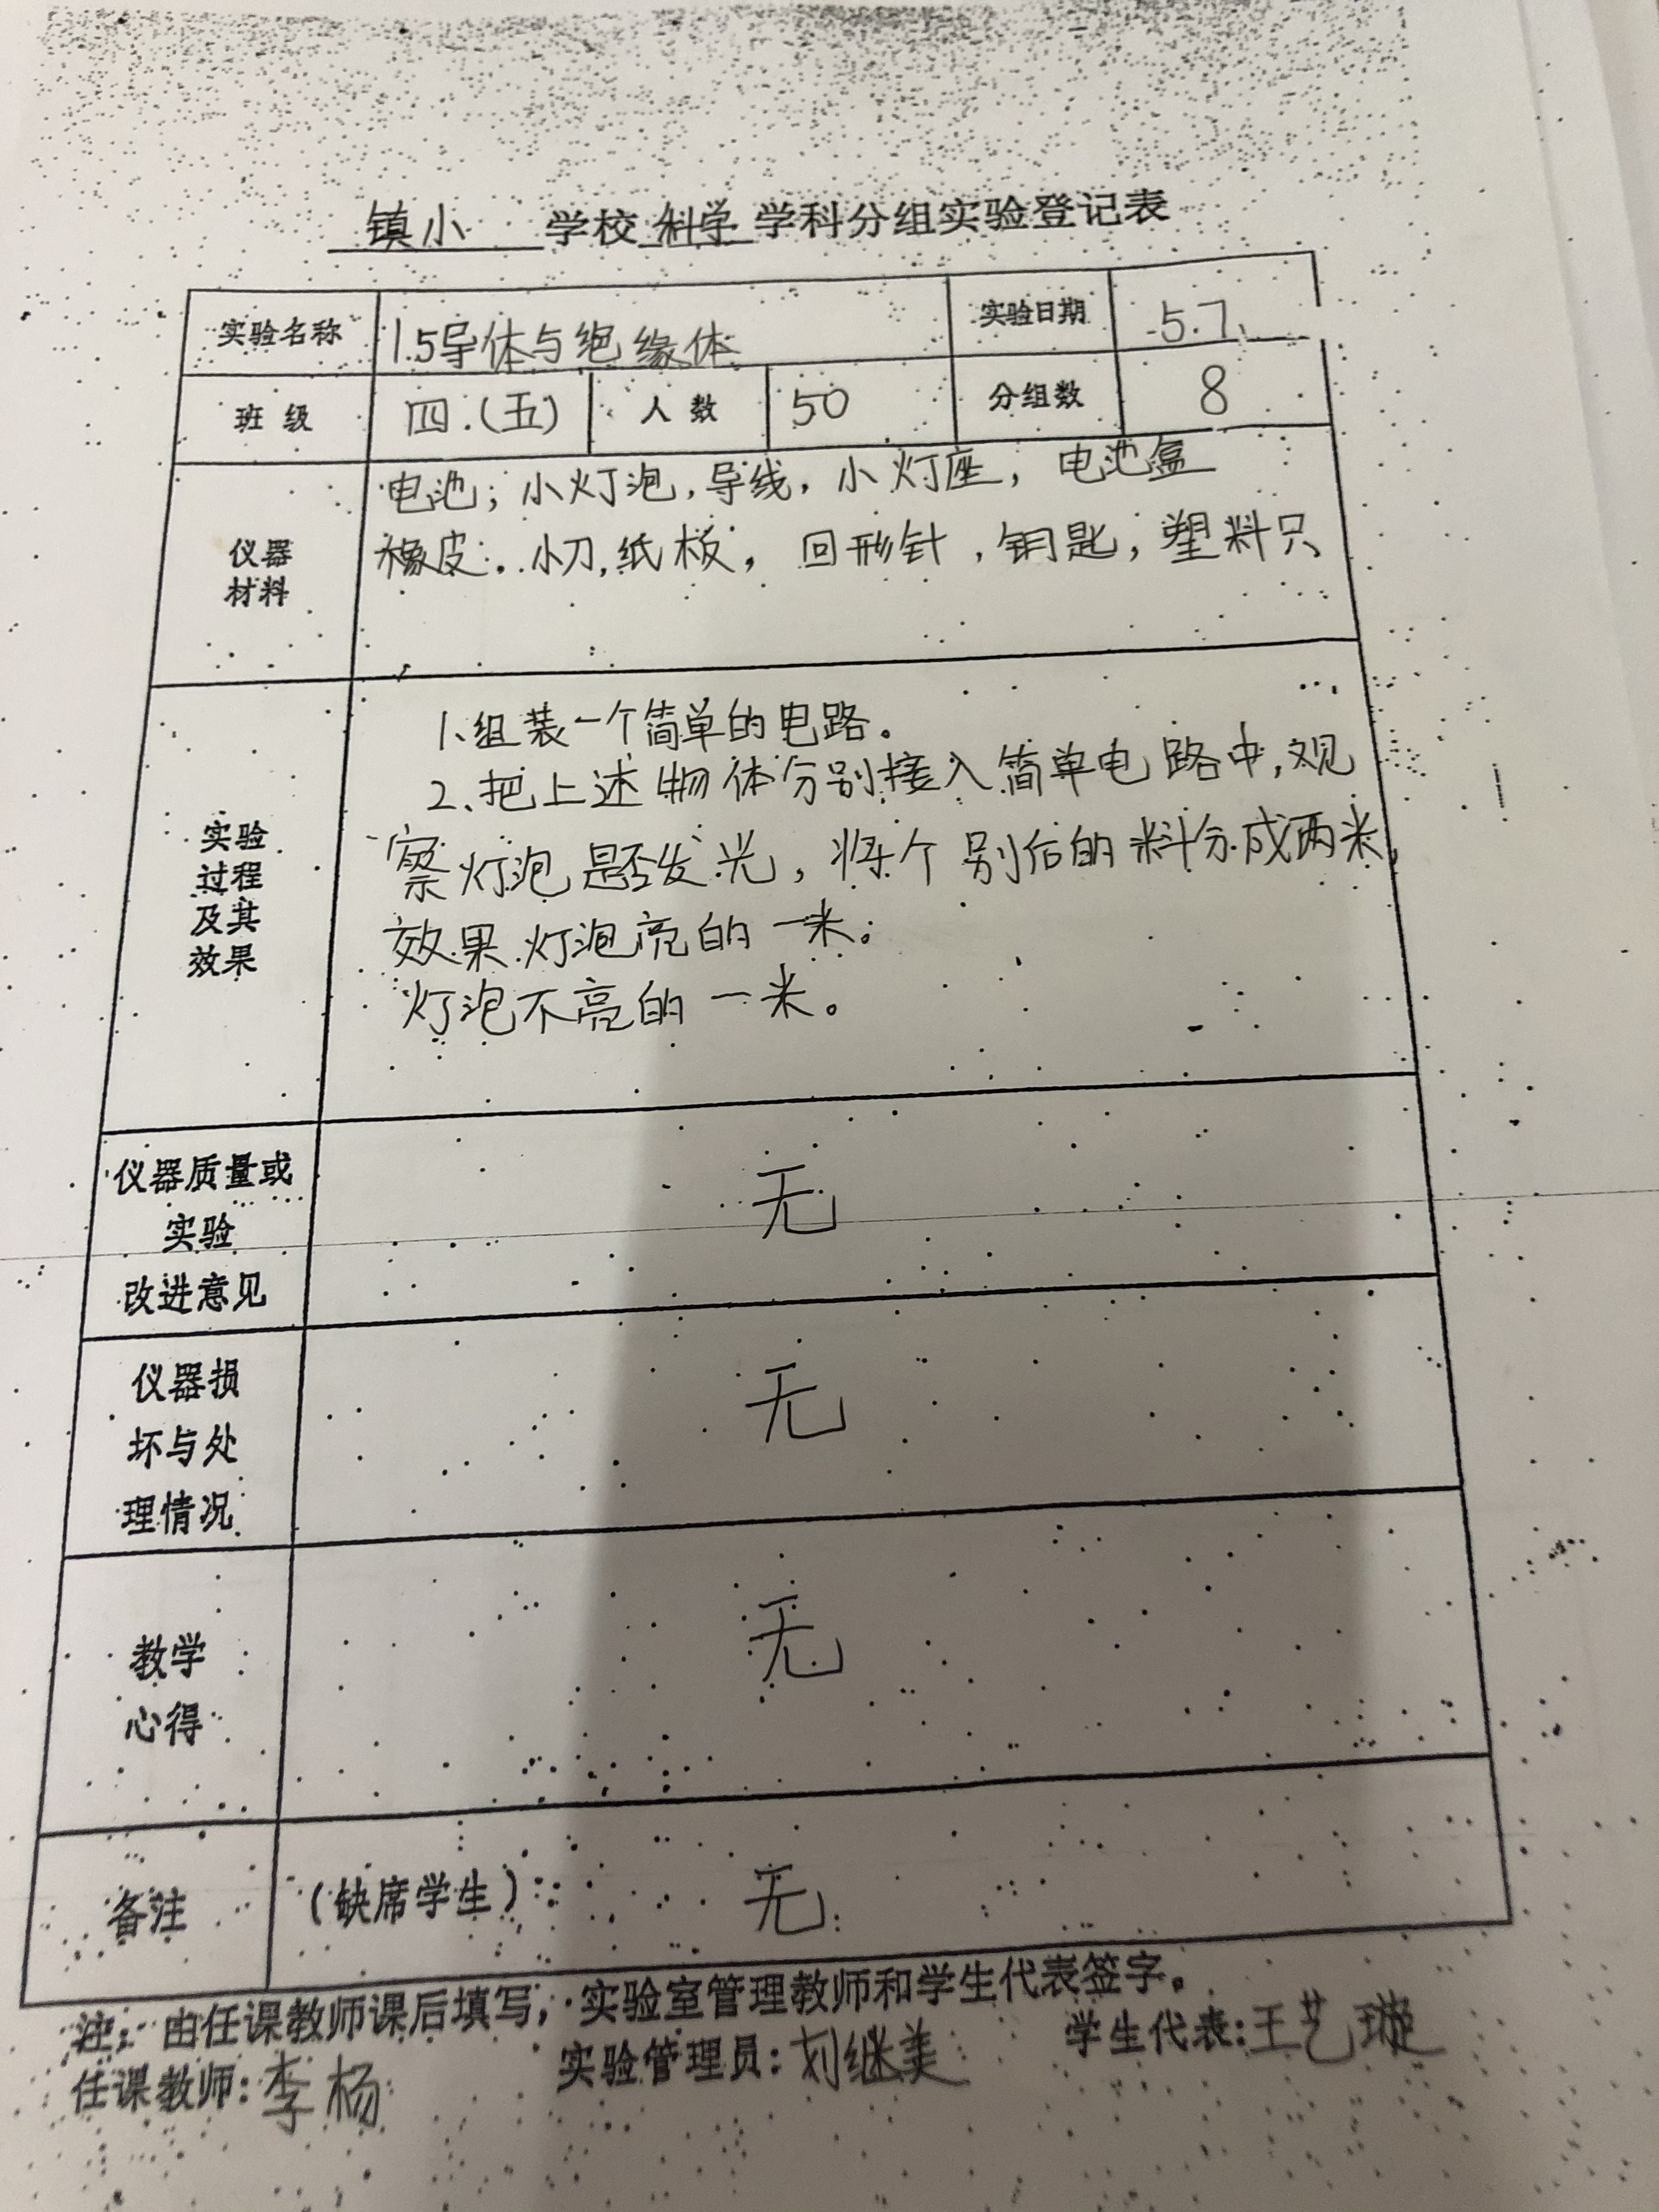 镇小 学校 科学 学科分组实验登记表
实验名称 1.5导体与绝缘体 实验日期 5.7
班级 四.(五) 人数 50 分组数 8
仪器
材料
电池；小灯泡,导线,小灯座,电池盒
橡皮.小刀,纸板,回形针,钥匙,塑料尺
实验
过程
及其
效果
1、组装一个简单的电路。
2、把上述物体分别接入简单电路中,观
察灯泡是否发光,将个别后的料分成两米,
效果.灯泡亮的一米;
灯泡不亮的一米。
仪器质量或
实验
改进意见
无
仪器损
坏与处
理情况
无
教学
心得
无
备注 (缺席学生): 无
注: 由任课教师课后填写,实验室管理教师和学生代表签字。
任课教师:李杨 实验管理员:刘继美 学生代表:王艺璇